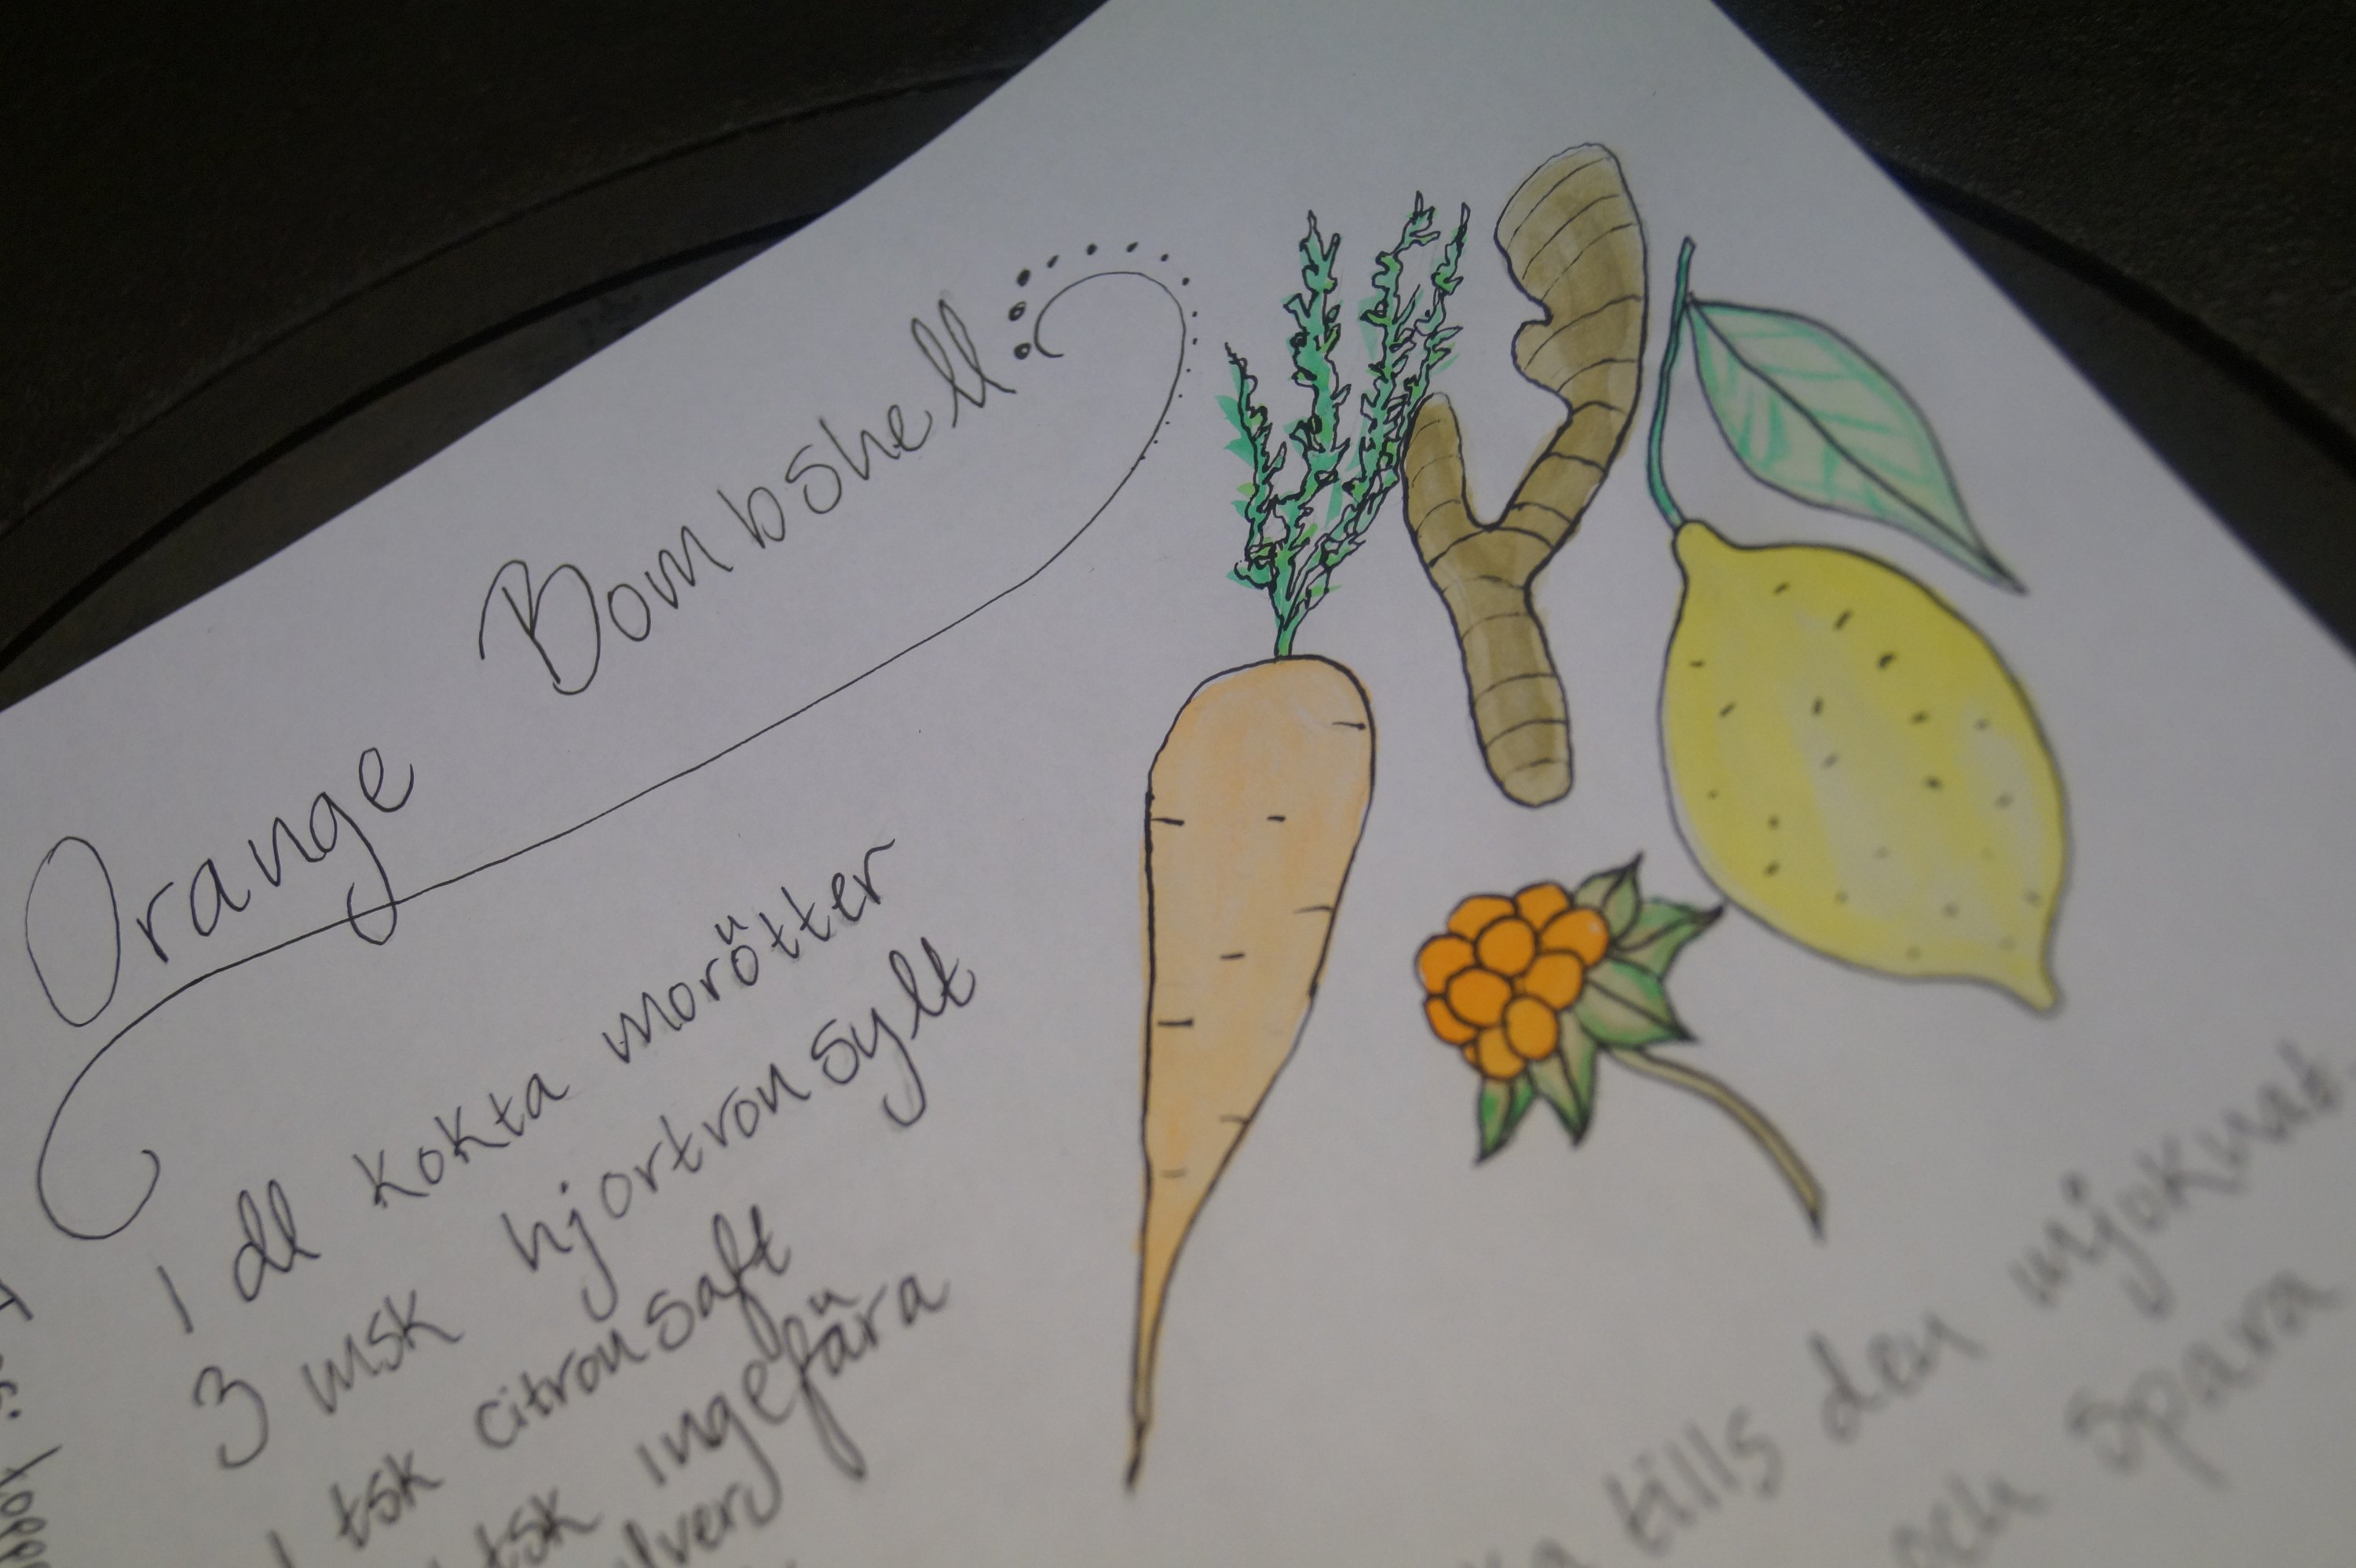 Orange Bombshell
1 dl kokta morötter
3 msk hjortronsylt
1 tsk citronsaft
tsk ingefära
tills den mjuknat.
och spara